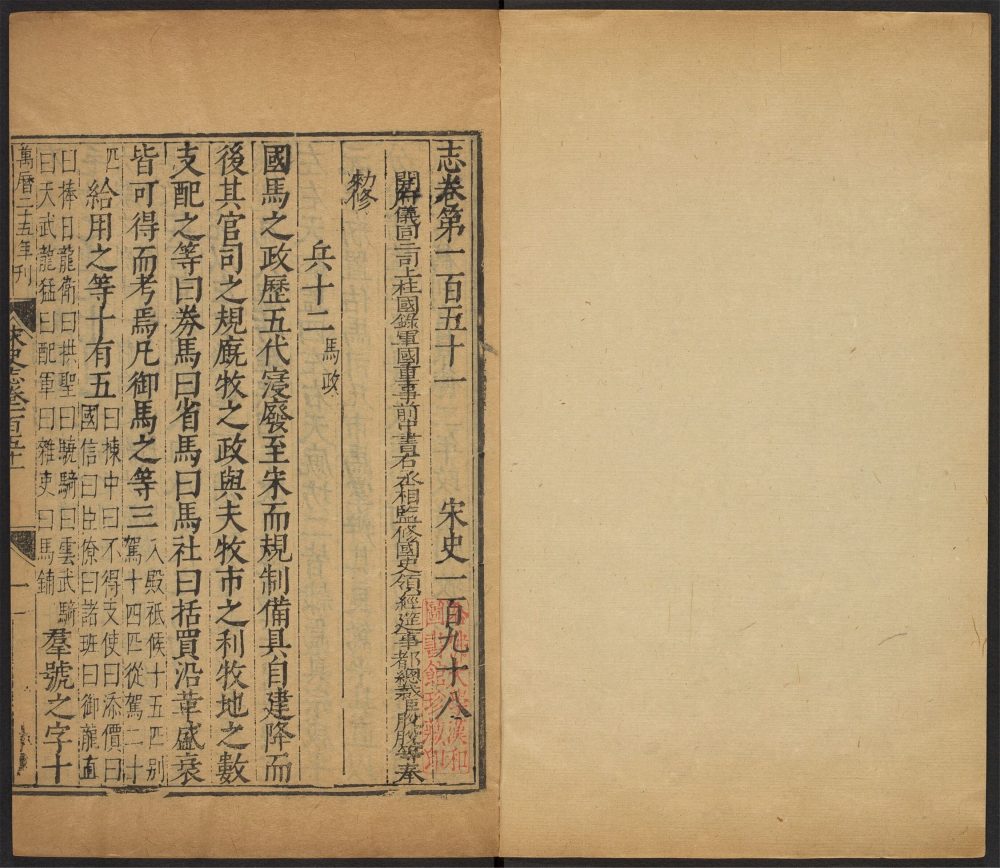 志卷第一百五十一 宋史一百九十八
開府儀同三司上柱國錄軍國重事前中書右丞相監修國史領經筵事都總裁臣脫脫等奉
勅修
兵十二 馬政
國馬之政歷五代寖廢至宋而規制備具自建隆而
後其官司之規廐牧之政與夫牧市之利牧地之數
支配之等曰券馬曰省馬曰馬社曰括買沿革盛衰
皆可得而考焉凡御馬之等三 入殿祗候十五匹别
駕十四匹從駕二十
匹 給用之等十有五 曰揀中曰不得支使曰添價曰
國信曰臣僚曰諸班曰御龍直
曰捧日龍衛曰拱聖曰驍騎曰雲武騎
曰天武龍猛曰配軍曰雜使曰馬鋪 羣號之字十
萬曆二十五年刊
宋史志卷一百五十一
一
哈佛大學漢和
圖書館珍藏印